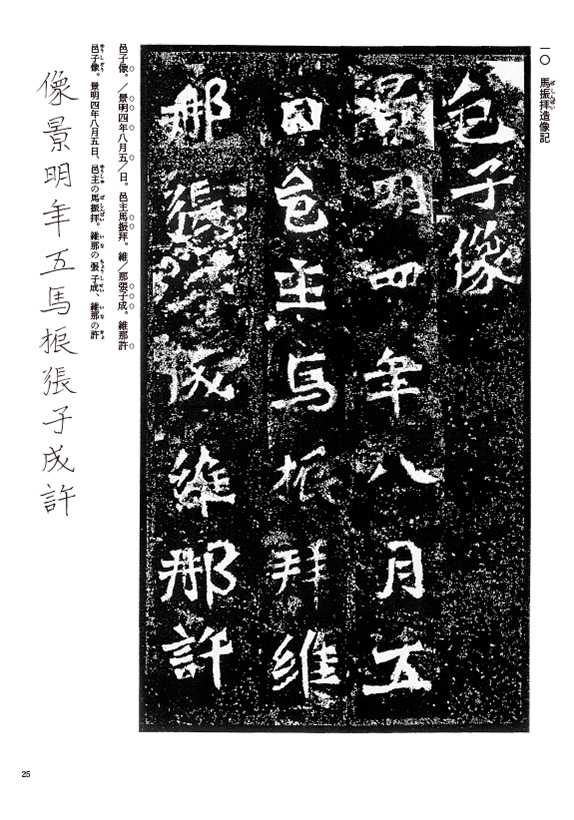 一〇 馬振拝造像記
邑子像
景明四年八月五
日邑主馬振拜維
那張子成維那許
邑子像。／景明四年八月五／日。邑主馬振拜。維／那張子成。維那許
邑子像。景明四年八月五日、邑主の馬振拜。維那の張子成、維那の許
像景明年五馬振張子成許
25